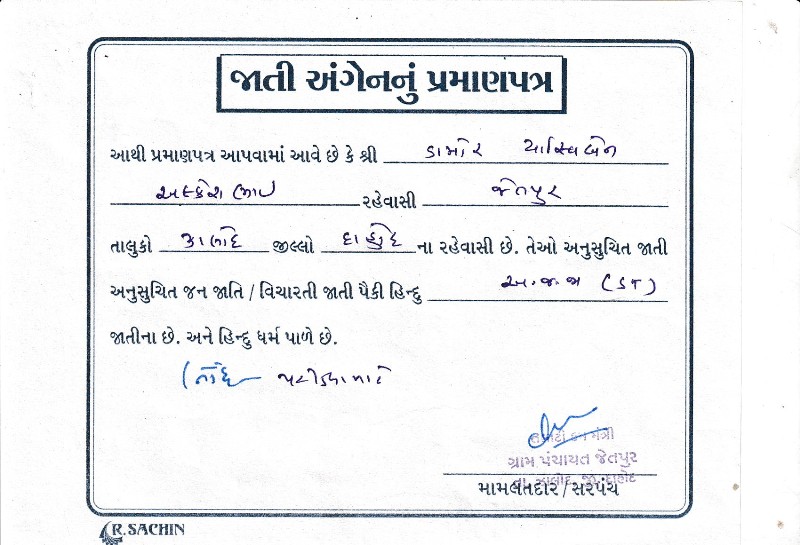 જાતી અંગેનનું પ્રમાણપત્ર
આથી પ્રમાણપત્ર આપવામાં આવે છે કે શ્રી ડામોર યાસ્વિબેન
અલ્કેશભાઇ રહેવાસી જેતપુર
તાલુકો ઝાલોદ જીલ્લો દાહોદ ના રહેવાસી છે. તેઓ અનુસુચિત જાતી
અનુસુચિત જન જાતિ / વિચારતી જાતી પૈકી હિન્દુ અ.જ.જા (ST)
જાતીના છે. અને હિન્દુ ધર્મ પાળે છે.
મંત્રી
ગ્રામ પંચાયત જેતપુર
તા. ઝાલોદ, જી. દાહોદ
મામલતદાર/સરપંચ
R. SACHIN